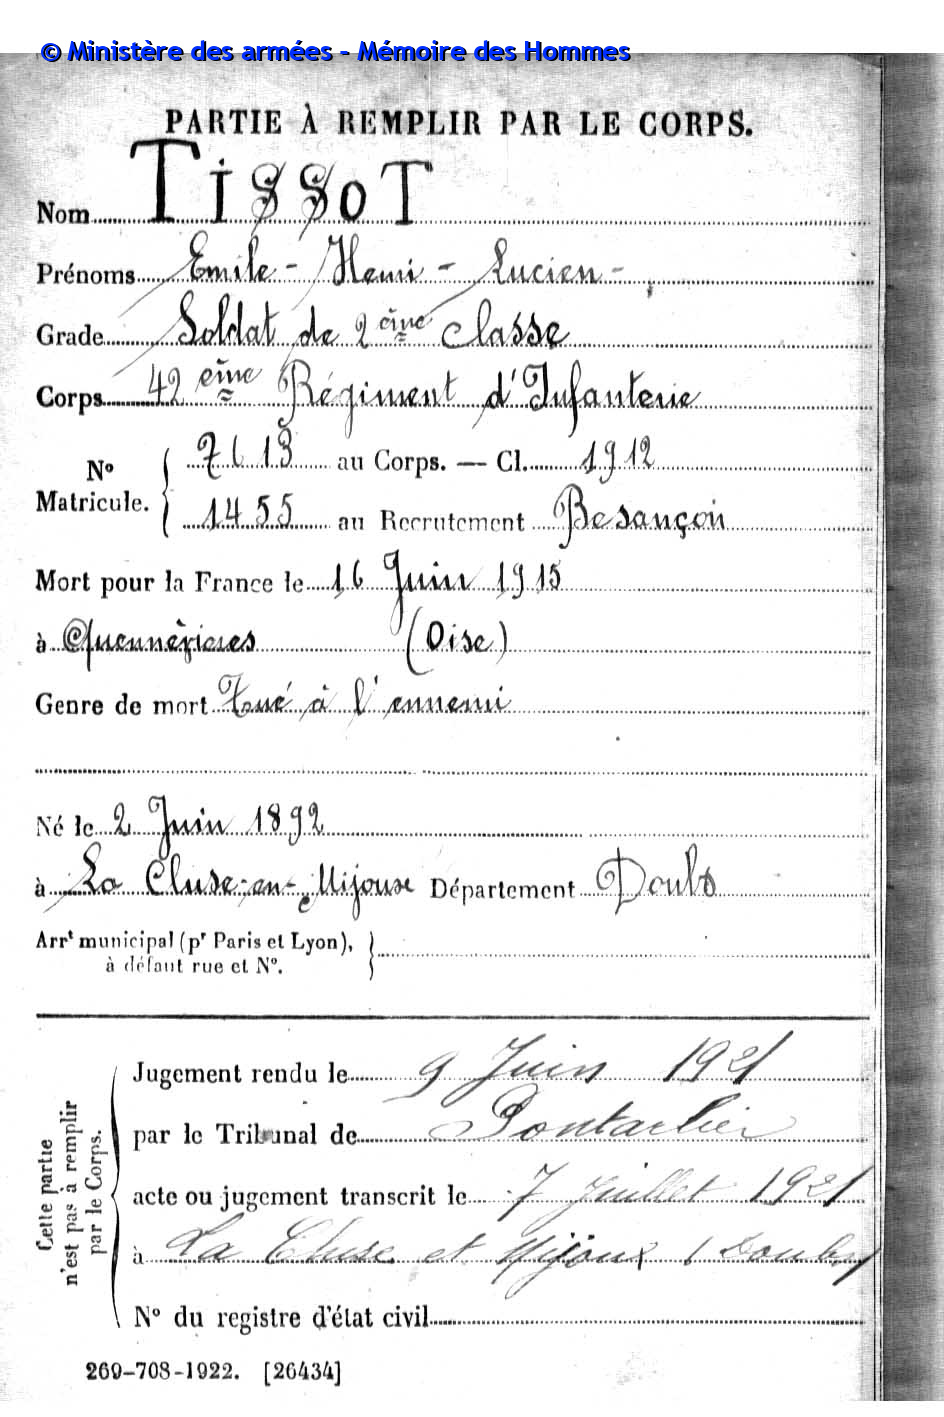 © Ministère des armées - Mémoire des Hommes
PARTIE À REMPLIR PAR LE CORPS.
Nom TISSOT
Prénoms Emile - Henri - Lucien -
Grade Soldat de 2ème classe
Corps 42ème Régiment d'Infanterie
N° Matricule. { 7613 au Corps. — Cl. 1912
1455 au Recrutement Besançon
Mort pour la France le 16 Juin 1915
à Quennevières (Oise)
Genre de mort Tué à l'ennemi
Né le 2 Juin 1892
à La Cluse-en-Mijoux Département Doubs
Arrt municipal (pr Paris et Lyon), à défaut rue et N°. }
Cette partie n'est pas à remplir par le Corps.
Jugement rendu le 9 Juin 1921
par le Tribunal de Pontarlier
acte ou jugement transcrit le 7 juillet 1921
à La Cluse et Mijoux (Doubs)
N° du registre d'état civil
269-708-1922. [26434]